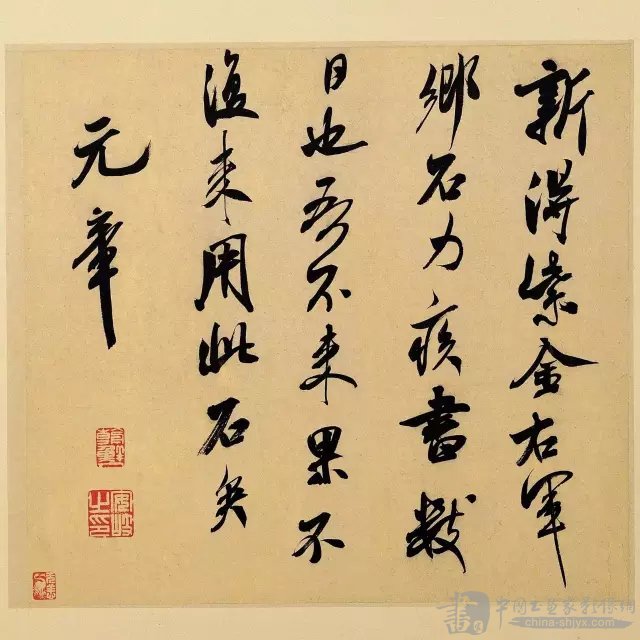 新得紫金右軍
鄉石力疾書數
日也吾不來果不
復來用此石矣
元章
china-shjyx.com